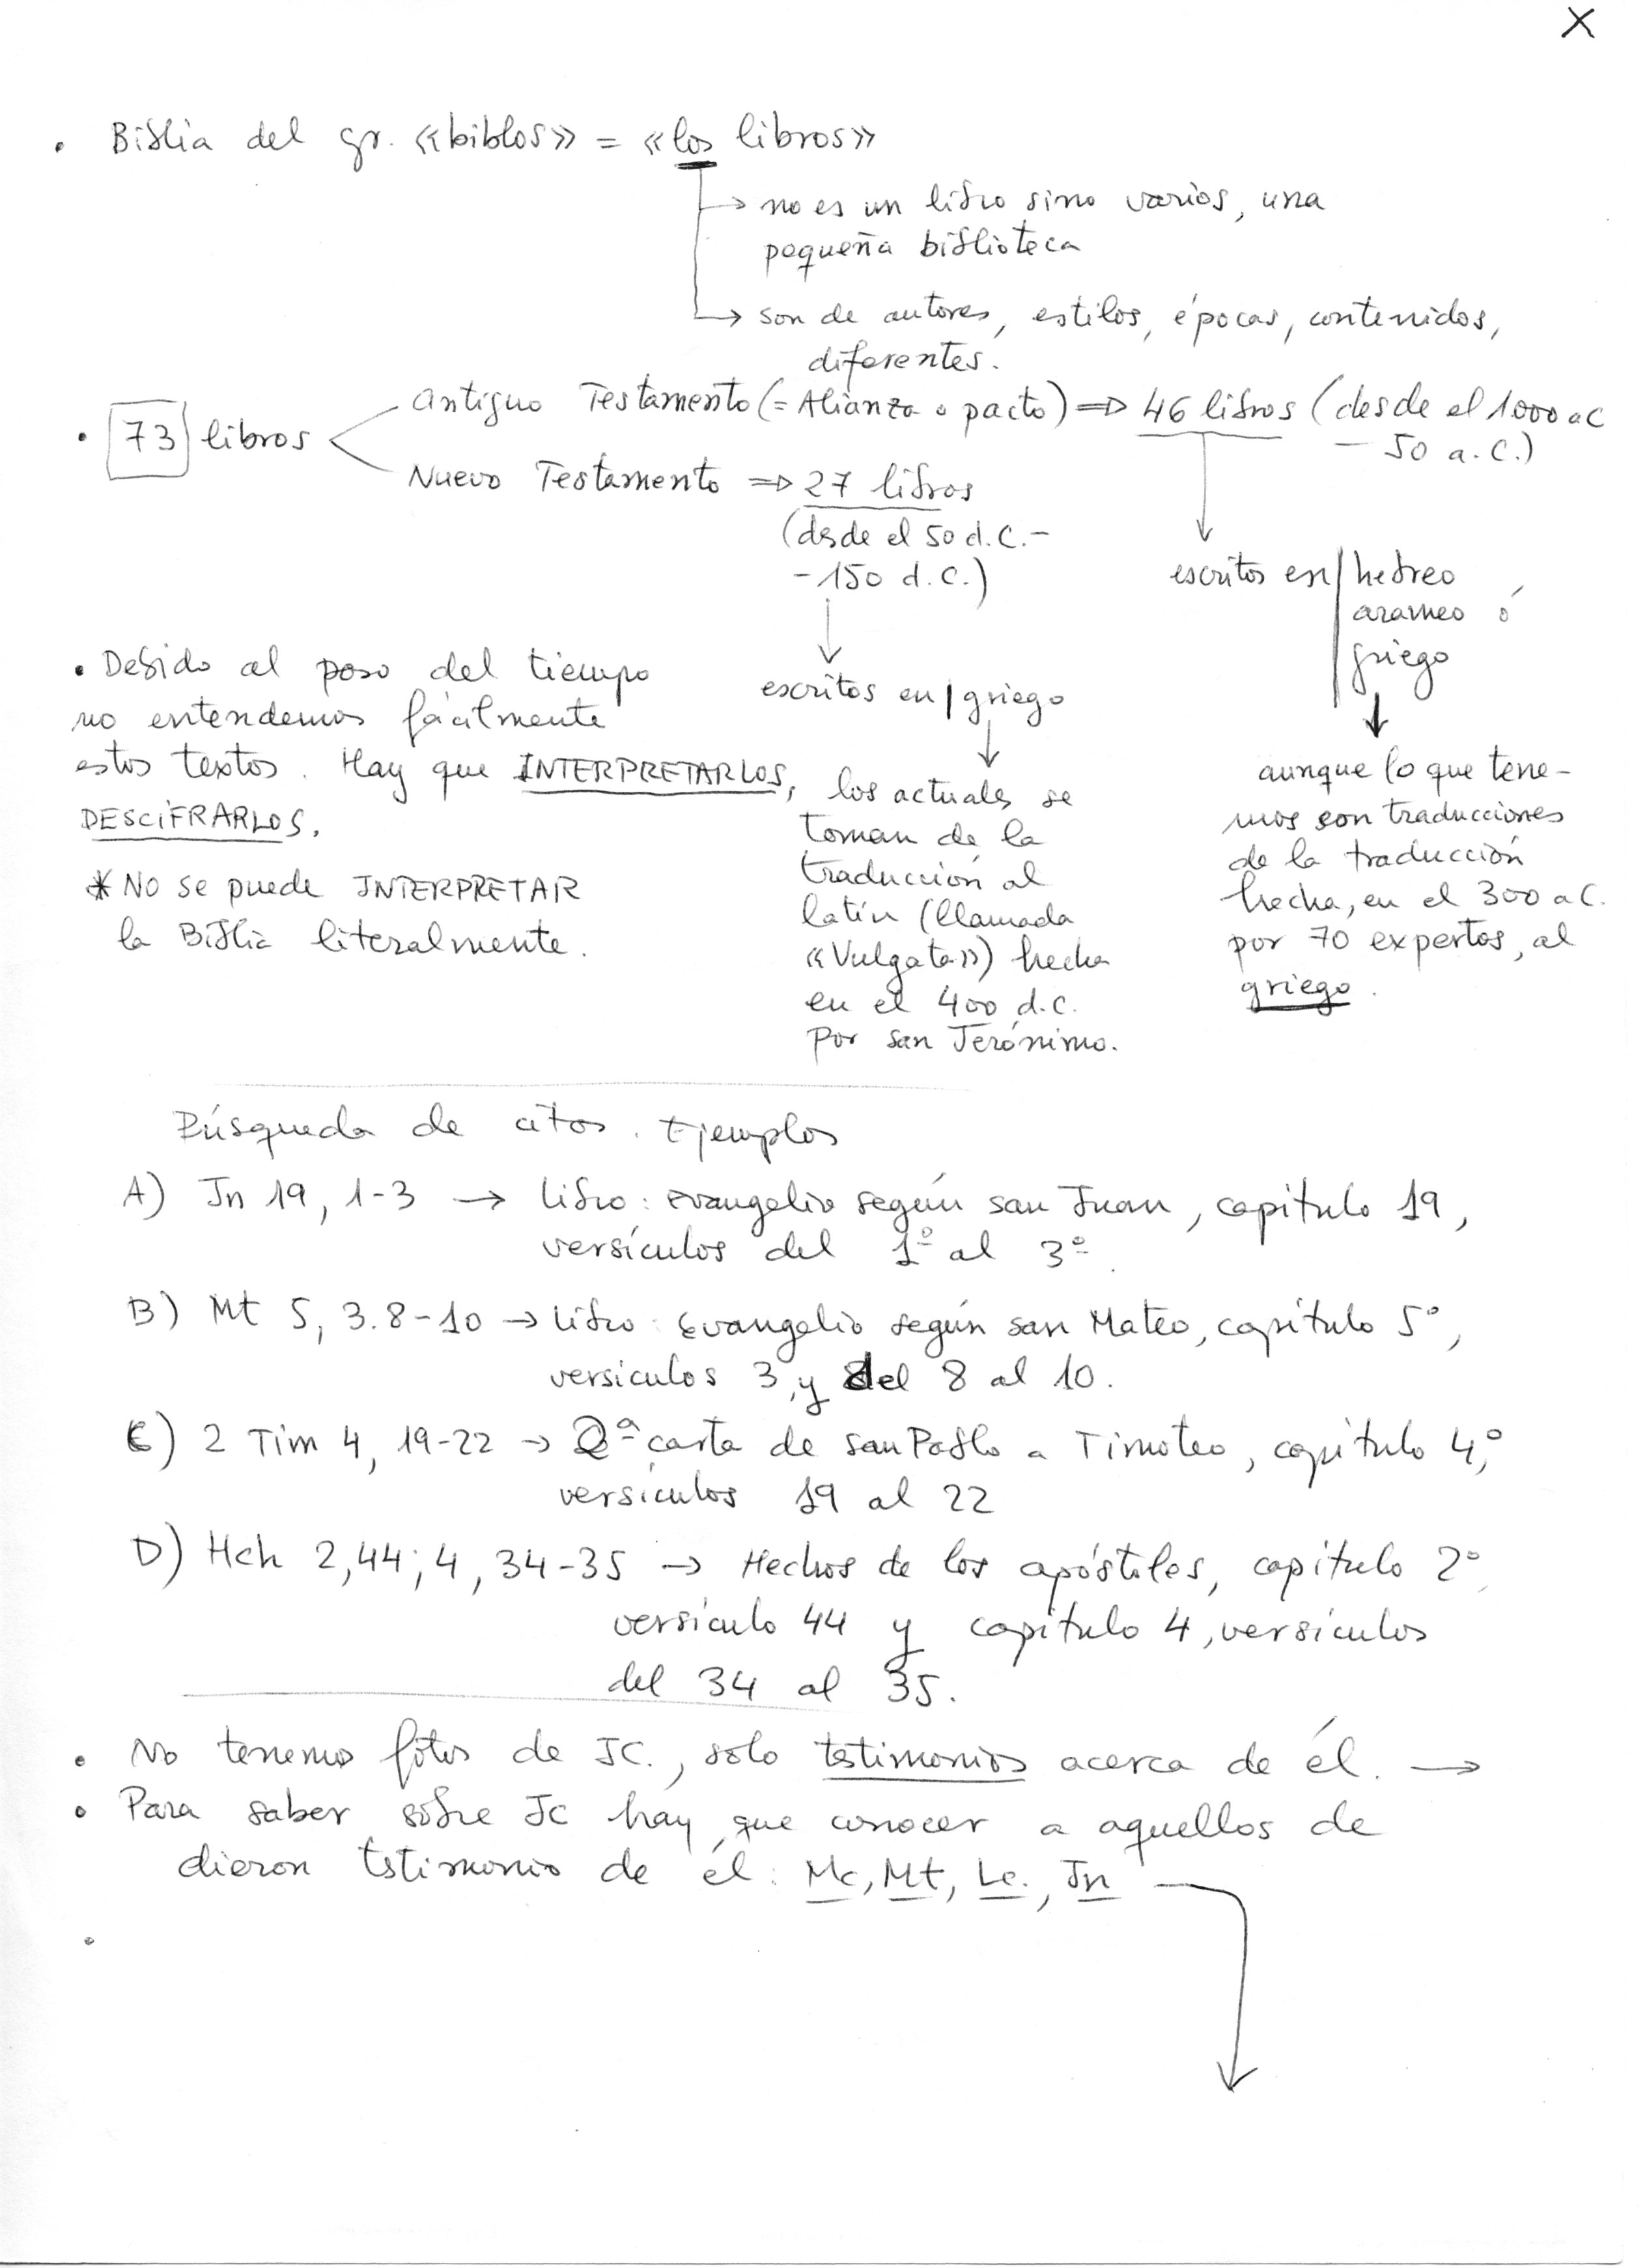 X
• Biblia del gr. «biblos» = «los libros»
→ no es un libro sino varios, una
pequeña biblioteca
→ son de autores, estilos, épocas, contenidos,
diferentes.
• 73 libros
Antiguo Testamento (= Alianza o pacto) ⇒ 46 libros (desde el 1000 a C
– 50 a. C.)
Nuevo Testamento ⇒ 27 libros
(desde el 50 d. C. –
– 150 d. C.)
escritos en | hebreo
arameo ó
griego
escritos en | griego
• Debido al paso del tiempo
no entendemos fácilmente
estos textos. Hay que INTERPRETARLOS,
DESCIFRARLOS.
* NO se puede INTERPRETAR
la Biblia literalmente.
los actuales se
toman de la
traducción al
latín (llamada
«Vulgata») hecha
en el 400 d.C.
por san Jerónimo.
aunque lo que tene-
mos son traducciones
de la traducción
hecha, en el 300 a C.
por 70 expertos, al
griego.
Búsqueda de citas. Ejemplos
A) Jn 19, 1-3 → libro: evangelio según san Juan, capítulo 19,
versículos del 1º al 3º.
B) Mt 5, 3.8-10 → libro: Evangelio según san Mateo, capítulo 5º,
versículos 3, y del 8 al 10.
C) 2 Tim 4, 19-22 → 2ª carta de san Pablo a Timoteo, capítulo 4º,
versículos 19 al 22
D) Hch 2,44; 4, 34-35 → Hechos de los apóstoles, capítulo 2º,
versículo 44 y capítulo 4, versículos
del 34 al 35.
• No tenemos fotos de JC., solo testimonios acerca de él. →
• Para saber sobre JC hay que conocer a aquellos de
dieron testimonio de él: Mc, Mt, Lc., Jn
•